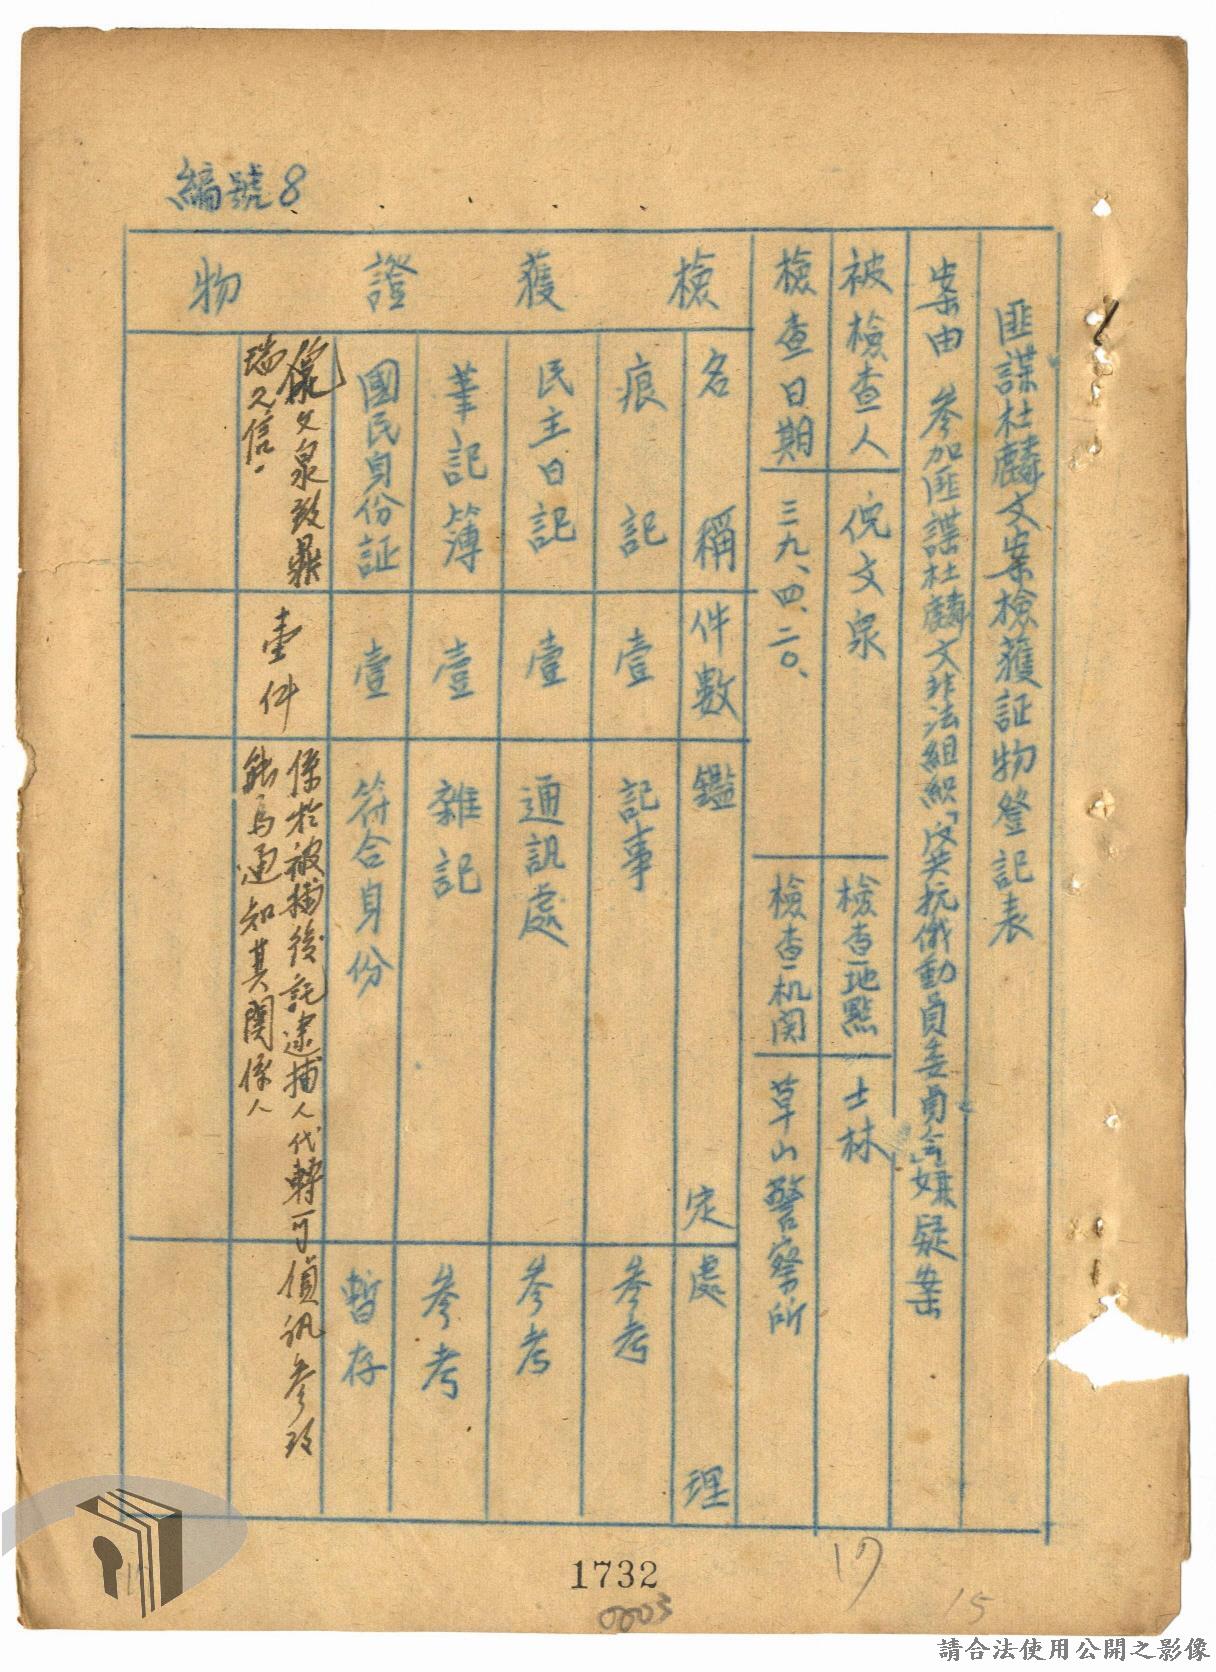 編號8
匪諜杜麟文案檢獲証物登記表
案由 參加匪諜杜麟文非法組織「反英抗俄動員委員會」嫌疑案
被檢查人 倪文泉 檢查地點 士林
檢查日期 三九、四、二〇、 檢查机関 草山警察所
檢獲證物
名稱 件數 鑑定 處理
痕記 壹 記事 參考
民主日記 壹 通訊處 參考
筆記簿 壹 雜記 參考
國民身份証 壹 符合身份 暫存
倪文泉致鼎
瑞之信。
壹件
係於被捕後託逮捕人代轉可偵訊參攷
能為通知其關係人
1732
0003
17
15
請合法使用公開之影像